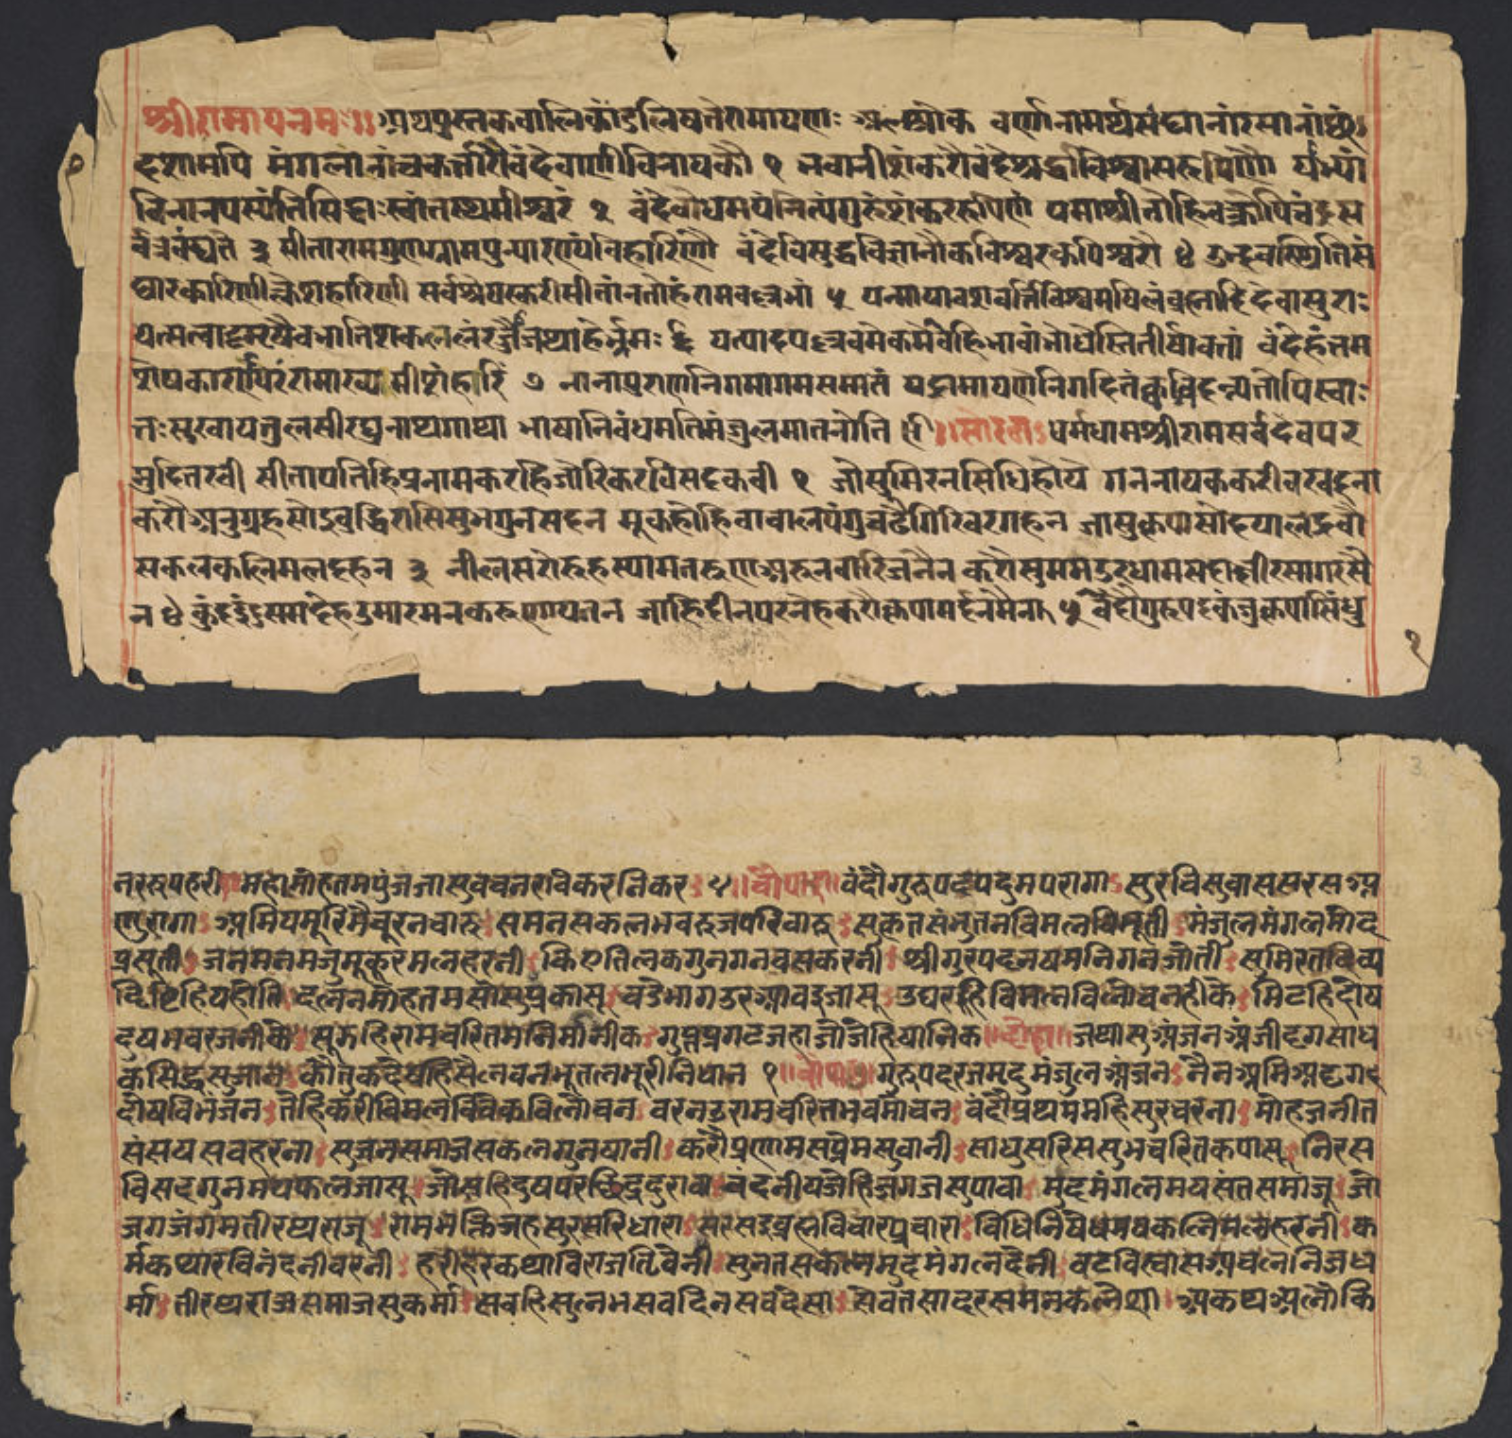 श्रीरामायनमः॥ अथपुस्तकवालिकांडलिषतेरामायणः श्लोक वर्णानामर्थसंघानांरसानांछं
दशामपि मंगलानांचकर्त्तारौवंदेवाणीविनायकौ १ भवानीशंकरौवंदेश्रद्धाविश्वासरूपिणौ याभ्यां
विनानपस्यंतिसिद्धाःस्वांतस्थमीश्वरं २ वंदेवोधमयंनित्यंगुरुंशंकररूपिणं यमाश्रीतोहिवक्रोपिचंद्रस
र्वत्रवंद्यते ३ सीतारामगुणग्रामपुन्यारण्यविहारिणौ वंदेविसुद्धविज्ञानौकविश्वरकपिश्वरौ ४ उद्भवस्थितिसं
घारकारिणीक्लेशहारिणी सर्वश्रेयस्करीसीतांनतोहंरामवल्लभां ५ यन्मायावशवर्त्तिविश्वमषिलंब्रह्मादिदेवासुराः
यत्सत्वादमृषैवभातिशकललंरज्जौजथाहेर्भ्रमः ६ यत्पादपल्लवमेकमेवहिभावांभोधेस्तितीर्षावतां वंदेहंतम
शेषकारणपरंरामाख्यमीशंहरिं ७ नानापुराणनिगमागमसमातं यद्रामायणेनिगदितंक्वचिदन्यतोपिस्वा
न्तःसुखायतुलसीरघुनाथगाथा भाषानिवंधमतिमंजुलमातनोति सोरठा धर्मधामश्रीरामसर्वदेवपर
मुदितरवी सीतापतिहिप्रनामकरहिजोरिकरविसदकवी १ जोसुमिरनसिधिहोय गननायककरीवरवदना
करौअनुग्रहसोइवुद्धिरासिसुभगुनसदन मूकहोहिवावालपंगुचढैगिरिवरगहन जासुकृपासोदयालद्रवौ
सकलकलिमलदहन ३ नीलसरोरुहस्यामतरुणअरुनवारिजनैन करौसुममउरधामसदाछीरसागरसै
न ४ कुंदइंदुसमदेहउमारमनकरुणायतन जाहिदीनपरनेहकरौकृपामर्दनमैन ५ वंदौगुरुपदकंजकृपासिंधु
१
नररुपहरी महामोहतमपुंजजासुवचनरविकरनिकर ५ चौपाई वंदौगुरुपदपदुमपरागा सुरविसुवाससरसअ
णुरागा अमियमूरिमैचूरनचारु समनसकलभवरुजपरिवारु सुकृतसंभुतनविमलविभूती मंजुलमंगलमोद
प्रसूती जनमनमजुमुकुरमलहरनी किएतिलकगुनगनवसकरनी श्रीगुरपदनषमनिगनजोती सुमिरतदिव्य
दिष्टिहियहोति दलनमोहतमसोसुप्रकासू वडेभागउरआवइजासू उघरहिविमलविलोचनहीके मिटहिदोष
दुषभवरजनीके सूझहिरामचरितमनिमानीक गुप्तप्रगटजहाजोजेहिषानिक दोहा जथासुअंजनअंजीदृगसाध
कसिद्धसुजान कौतुकदेषहिसैलवनभूतलभूरीनिधान १ चौपाई गुरुपदरजमृदुमंजुलअंजन नैनअमिअदृग
दोषविभंजन तेहिकरीविमलविवेकविलोचन वरनउरामचरितभवमोचन वंदौप्रथममहिसुरचरना मोहजनीत
संसयसवहरना सुजनसमाजसकलगुनषानी करौप्रणामसप्रेमसुवानी साधुसरिससुभचरितकपासू निरस
विसदगुनमयफलजासू जोसहिदुषपरछिद्रदुरावा वंदनीयजेहिजगजसुपावा मुदमंगलमयसंतसमाजू जो
जगजंगमतीरथराजू रामभक्तिजहसुरसरिधारा सरसइव्रह्मविचारप्रचारा विधिनिषेधमयकलिमलहरनी क
र्मकथारविनंदनीवरनी हरीहरकथाविराजतिवेनी सुनतसकलमुदमंगलदेनी वटविस्वासअचलनिजध
र्मा तीरथराजसमाजसुकर्मा सवहिसुलभसवदिनसवदेसा सेवतसादरसमनकलेशा अकथअलौकि